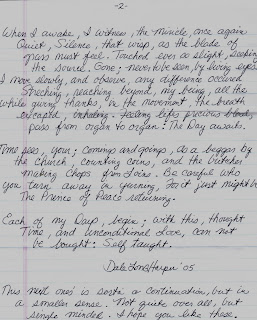 -2-
When I awake, I witness, the miracle, once again
Quiet, Silence, that wisp, as the blade of
grass must feel. Touched ever so slight, seeking
the source. Gone; never to be seen, by living eyes
I move slowly, and observe, any difference occured
Streching, reaching beyond, my being, all the
while giving thanks, in the movement, the breath
escaped, inhaling feeling lifes precious
pass from organ to organ: The Day awaits.
Time sees, your; comings and goings, as a beggar by
the church, counting coins, and the butcher
making Chops from Loins. Be careful who
you turn away in yearning, for it just might be
The Prince of Peace returning.
Each of my Days, begin; with this, thought
Time, and Unconditional Love, can not
be bought: Self taught.
'05
This next one's is sorta a continuation, but in
a smaller sense. Not quite over all, but
single minded. I hope you like these.